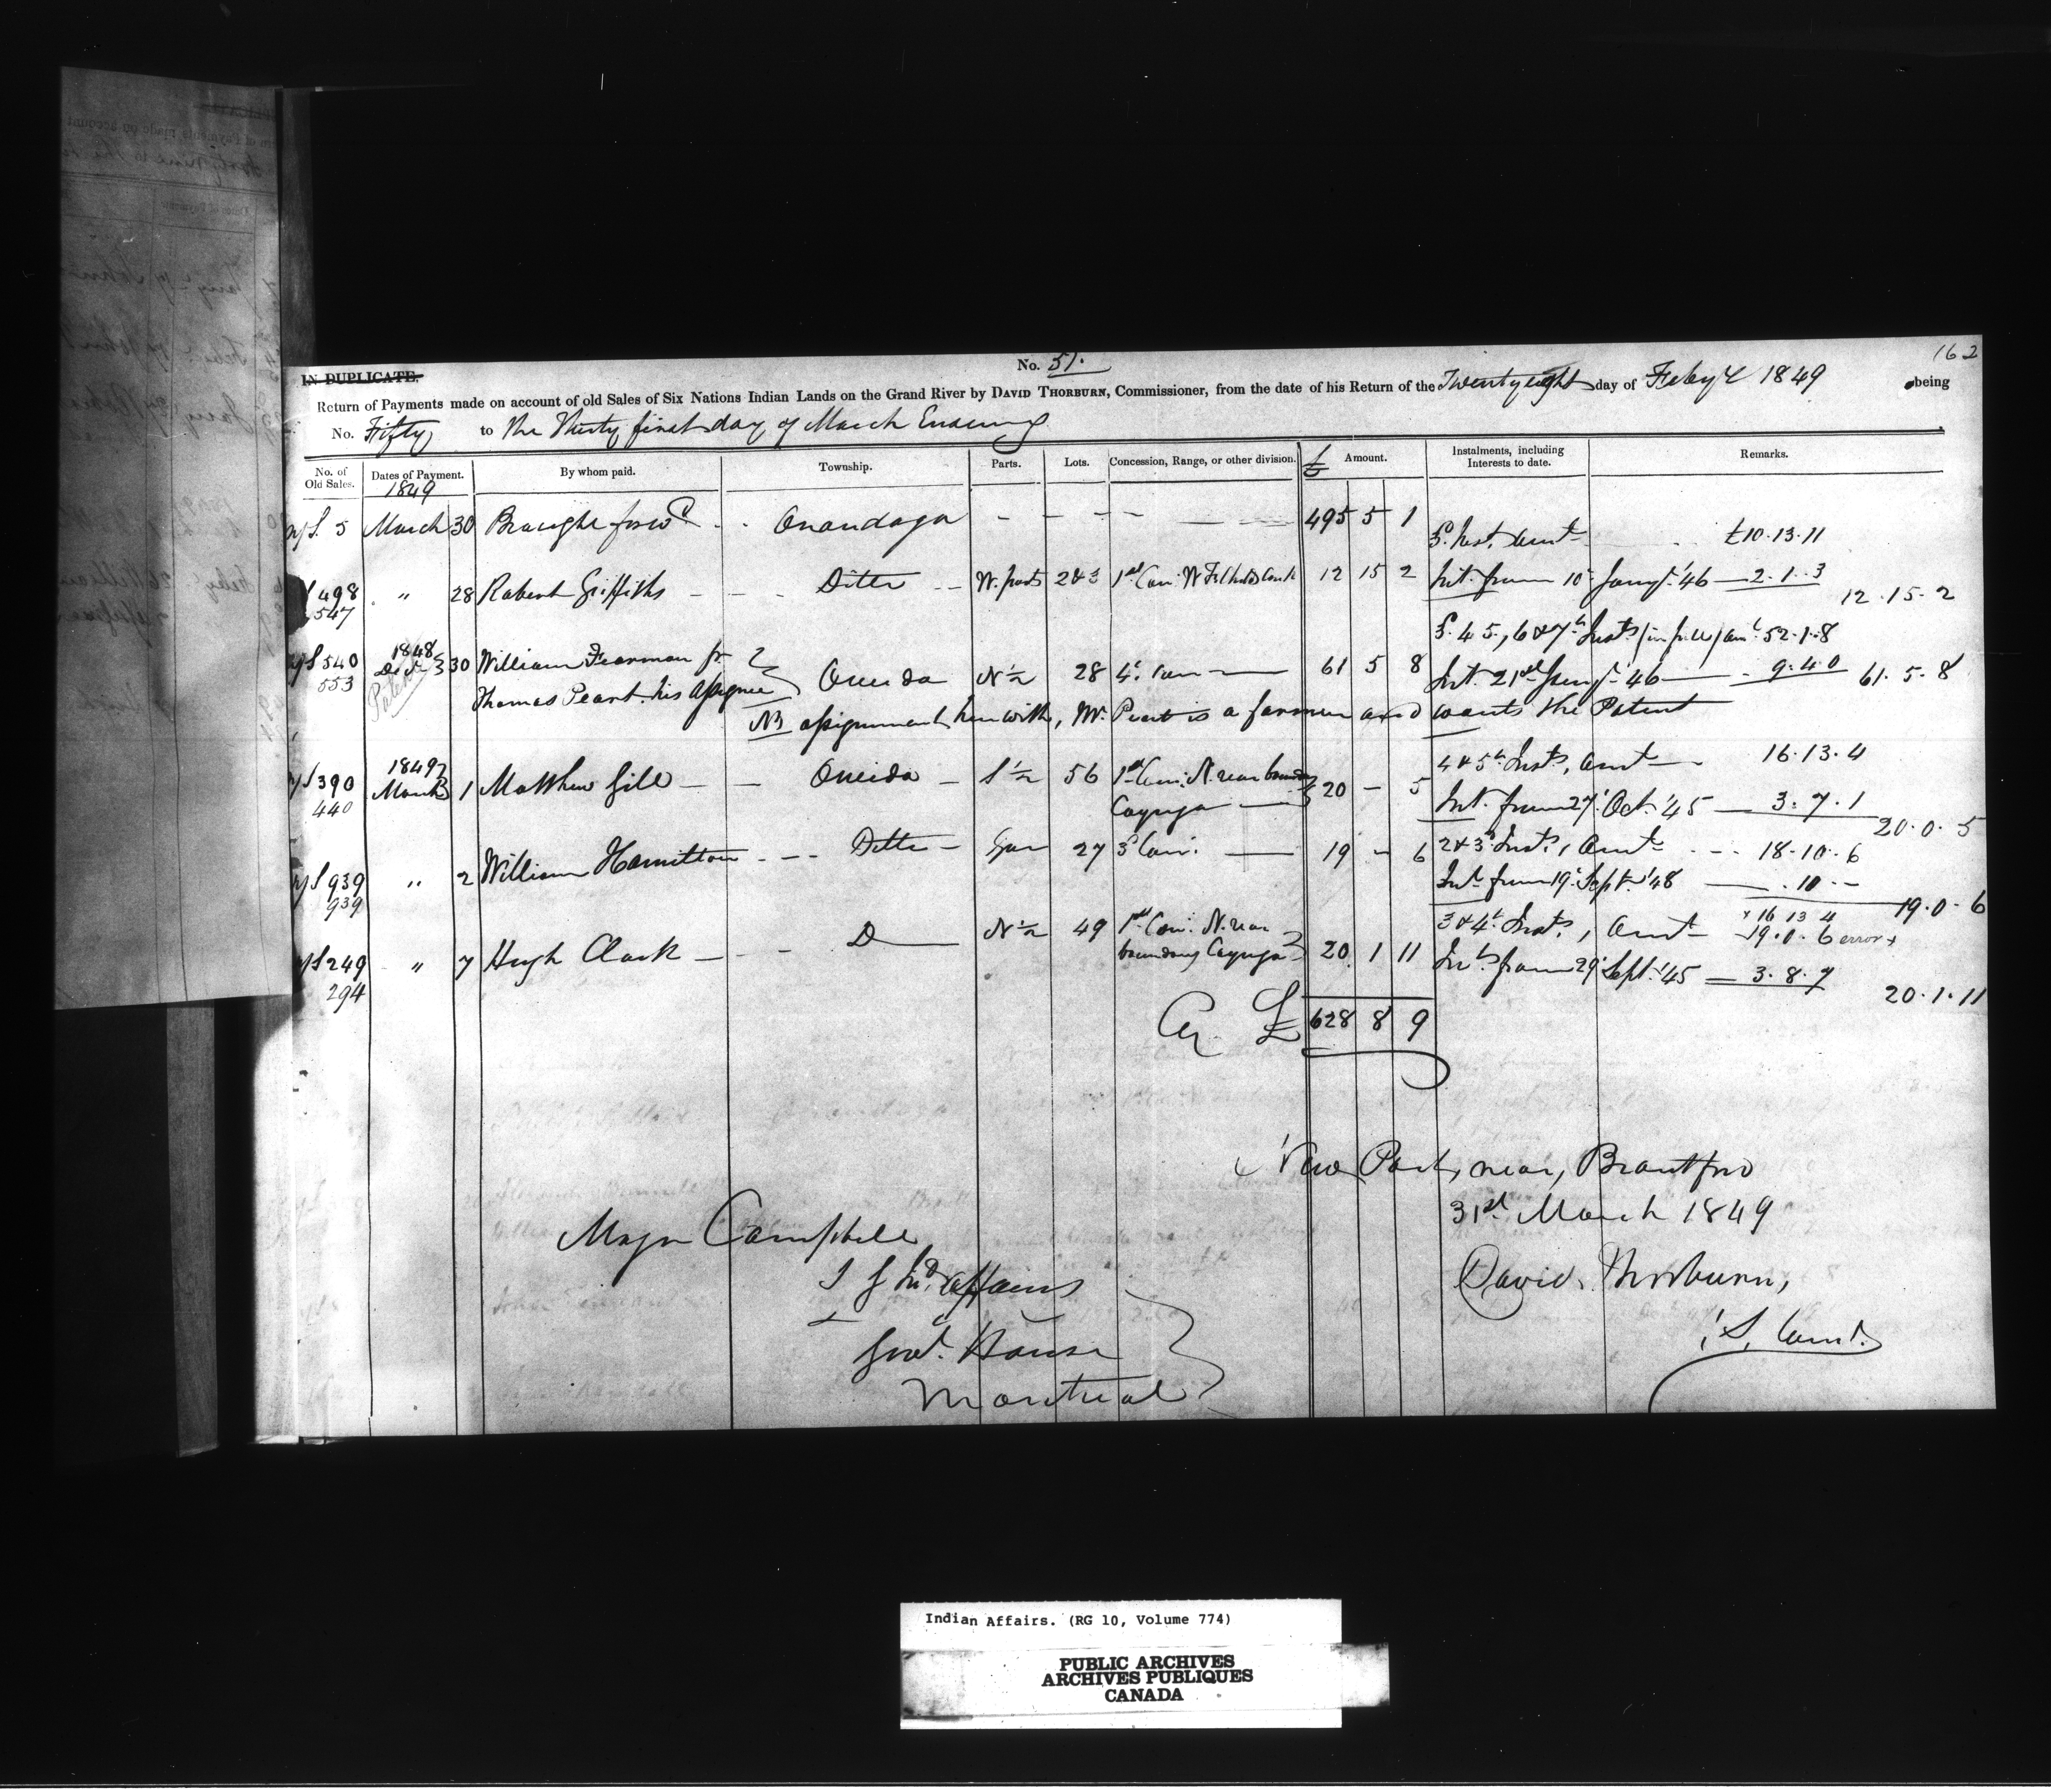 162
No. 51.
IN DUPLICATE.
Return of Payments made on account of old Sales of Six Nations Indian Lands on the Grand River by DAVID THORBURN, Commissioner, from the date of his Return of the Twenty eight day of Feby 1849 being
No. Fifty to the Thirty first day of March Ensuing
No. of Old Sales. Dates of Payment. By whom paid. Township. Parts. Lots. Concession, Range, or other division. £ Amount. Instalments, including Interests to date. Remarks.
1849
5 March 30 Brought forwd Onondaga 495 5 1
Inst. Amt £10.13.11
498 " 28 Robert Griffiths Ditto W. parts 2&3 1st Con. 12 15 2 Int. from 10 Jany '46 2.1.3
547 12.15.2
4 5, 6 & 7th Insts (in full) amt 52.1.8
540 1848 Dec 30 William Fearman Jr N½ 28 4 con 61 5 8 Int. 21st Jany '46 9.4.0
553 Patent Thomas Peart his assignee Oneida 61.5.8
NB assignment herewith, Mr. Peart is a farmer and wants the Patent
390 1849 March 1 Matthew Gill Oneida S½ 56 1st Con. N. near boundary 20 - 5 4 & 5th Insts, Amt 16.13.4
440 Cayuga Int. from 27 Oct. '45 3.7.1
20.0.5
939 " 2 William Hamilton Ditto 27 3d Con. 19 - 6 2 & 3d Insts, Amt 18.10.6
939 Int from 19 Sept. '48 .10.-
19.0.6
249 " 7 Hugh Clark D N½ 49 1st Con. N. near 20 1 11 3 & 4th Insts, Amt x 16 13 4
19.0.6 error x
294 boundary Cayuga Int from 29 Sept. '45 3.8.7
20.1.11
Cy £ 628 8 9
near, Brantford
31st March 1849
Major Campbell
S G Ind Affairs
David Thorburn,
Govt. House
Montreal
Indian Affairs. (RG 10, Volume 774)
PUBLIC ARCHIVES
ARCHIVES PUBLIQUES
CANADA